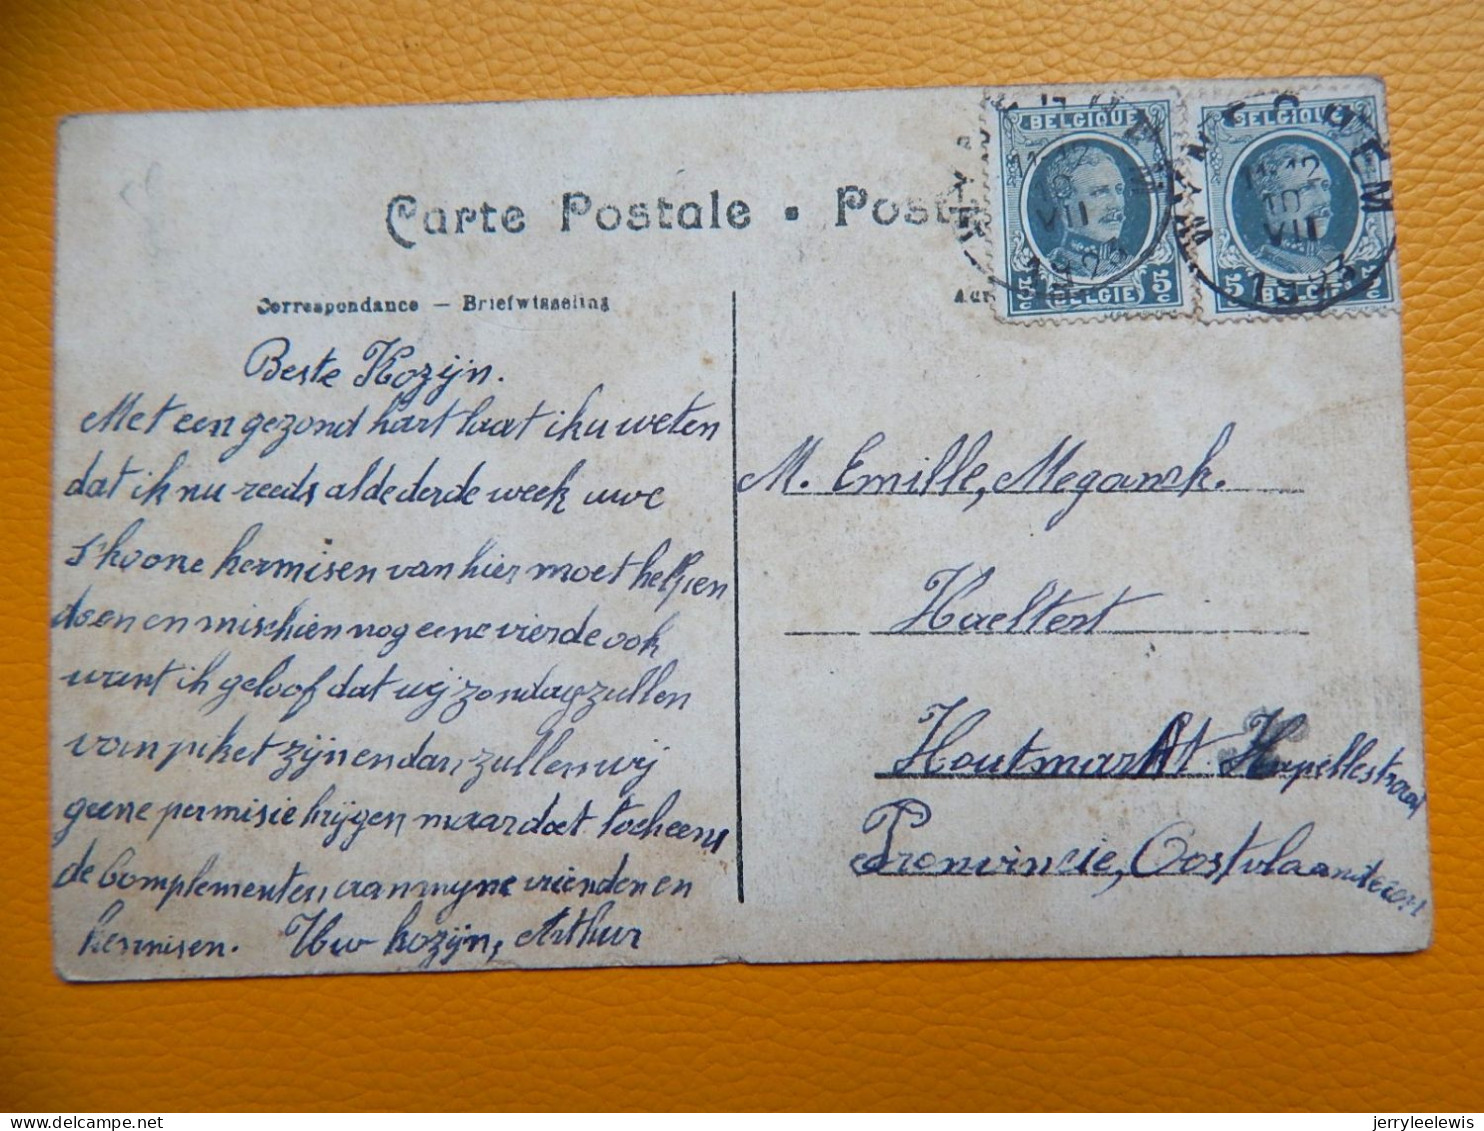 Carte Postale • Post
Correspondance — Briefwisseling
BELGIQUE
11-12
10
VII
1923
5
BELGIE 5
BELGIQUE
WYNEGHEM
11-12
10
VII
1923
5
BELGIE 5
Beste Kozijn.
Met een gezond hart laat ik u weten
dat ik nu reeds al de derde week uwe
s'koone kermisen van hier moet helpen
doen en mischien nog eene vierde ook
want ik geloof dat wij zondag zullen
van piket zijn en dan zullen wij
geene permisie krijgen maar doet toch eens
de Complementen aan myne vrienden en
kermisen. Uw kozijn, Arthur
M. Emille, Meganck.
Haeltert
Houtmarkt Kapellestraat
Pronvincie, Oostvlaanderen
jerryleelewis